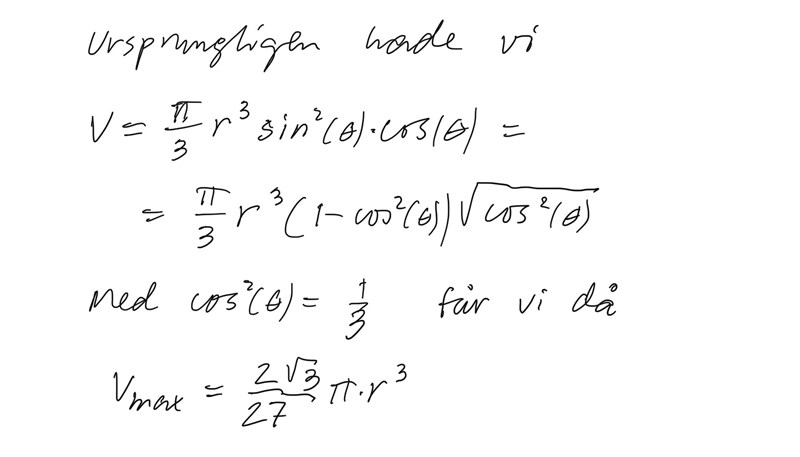 Ursprungligen hade vi
V = π/3 r³ sin²(θ)·cos(θ) =
= π/3 r³ (1 - cos²(θ)) √(cos²(θ))
Med cos²(θ) = 1/3 får vi då
Vmax = 2√3/27 π·r³